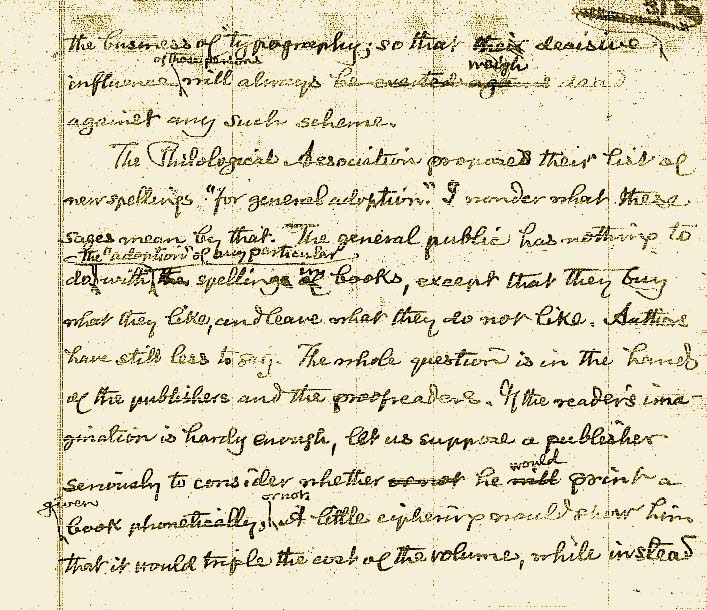 the business of typography; so that their decisive
of those persons weigh
influence will always be exerted against and
against any such scheme.
The Philological Association proposed their list of
new spellings "for general adoption." I wonder what these
sages mean by that. The general public has nothing to
the "adoption" of any particular
do with the spellings in of books, except that they buy
what they like, and leave what they do not like. Authors
have still less to say. The whole question is in the hands
of the publishers and the proofreaders. If the reader's ima-
gination is hardy enough, let us suppose a publisher
would
seriously to consider whether or not he will print a
given or not
book phonetically, A little ciphering would show him
that it would triple the cost of the volume, while instead